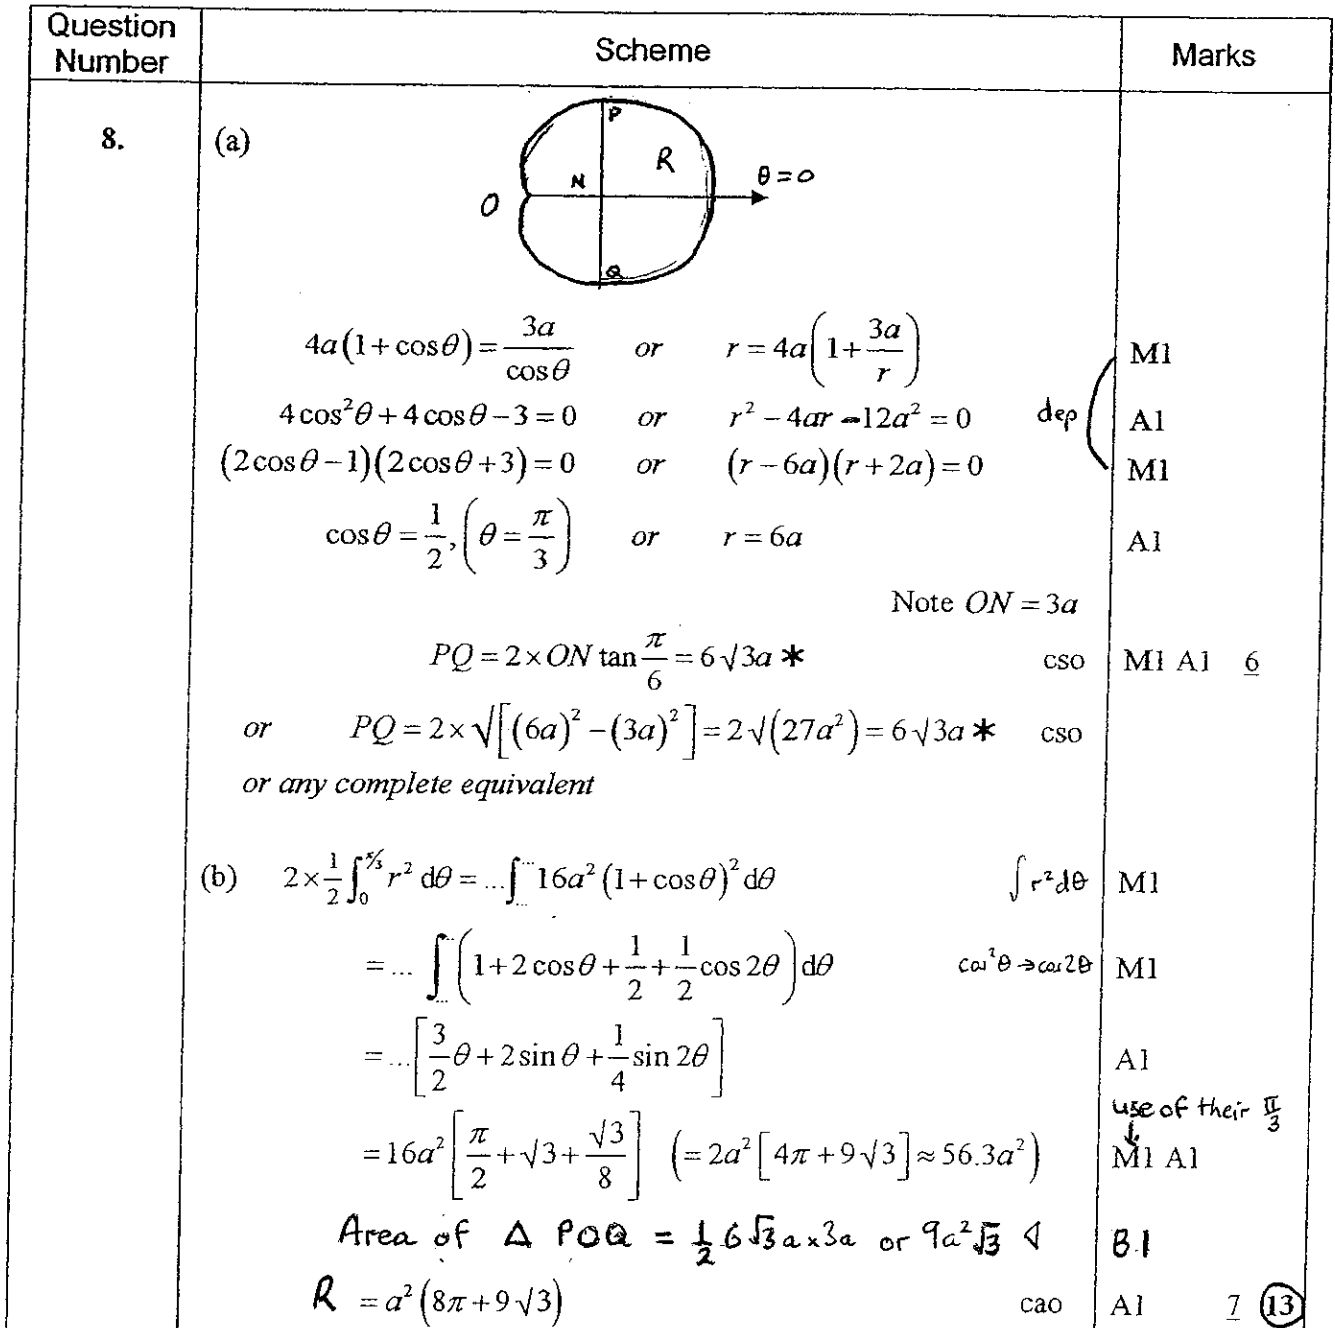 Question Number Scheme Marks
8. (a)
P
R
N
θ = 0
O
Q
4a(1 + cos θ) = 3a/cos θ or r = 4a(1 + 3a/r) M1
4cos²θ + 4cos θ − 3 = 0 or r² − 4ar − 12a² = 0 dep A1
(2cos θ − 1)(2cos θ + 3) = 0 or (r − 6a)(r + 2a) = 0 M1
cos θ = 1/2, (θ = π/3) or r = 6a A1
Note ON = 3a
PQ = 2 × ON tan π/6 = 6√3a * cso M1 A1 6
or PQ = 2 × √[(6a)² − (3a)²] = 2√(27a²) = 6√3a * cso
or any complete equivalent
(b) 2 × 1/2 ∫₀^(π/3) r² dθ = ...∫ 16a²(1 + cos θ)² dθ ∫r²dθ M1
= ... ∫ (1 + 2cos θ + 1/2 + 1/2 cos 2θ) dθ cos²θ → cos2θ M1
= ...[3/2 θ + 2sin θ + 1/4 sin 2θ] A1
use of their π/3
↓
= 16a²[π/2 + √3 + √3/8] (= 2a²[4π + 9√3] ≈ 56.3a²) M1 A1
Area of Δ POQ = 1/2 6√3a × 3a or 9a²√3 B1
R = a²(8π + 9√3) cao A1 7 (13)